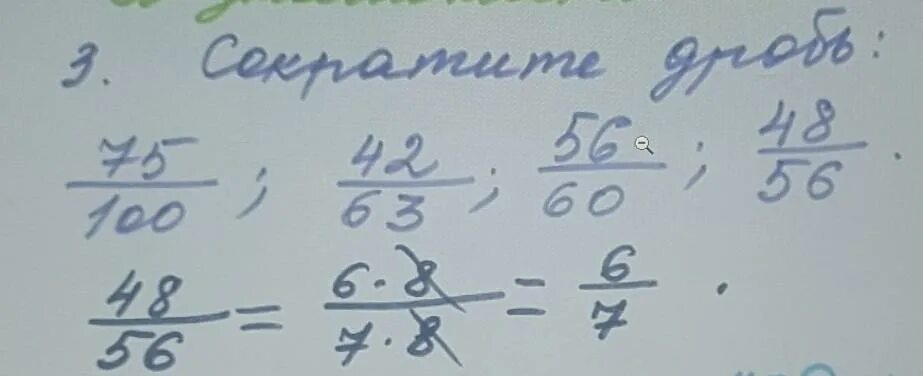 3. Сократите дробь:
75/100 ; 42/63 ; 56/60 ; 48/56 .
48/56 = 6·8/7·8 = 6/7 .